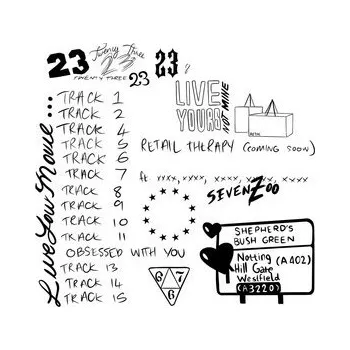 23
Twenty Three
23
TWENTY THREE
23
23
?
Live You Movie...
TRACK 1
TRACK 2
TRACK 4
TRACK 5
TRACK 6
TRACK 7
TRACK 8
TRACK 9
TRACK 10
TRACK 11
OBSESSED WITH YOU
TRACK 13
TRACK 14
TRACK 15
LIVE
YOURS
NOT MINE
RETAIL THERAPY (COMING SOON)
ft xxxx, xxxx, xxxx, xxxx, xxxx
SEVENZOO
6 7
6
SHEPHERD'S
BUSH GREEN
Notting (A402)
Hill Gate
Westfield
(A3220)